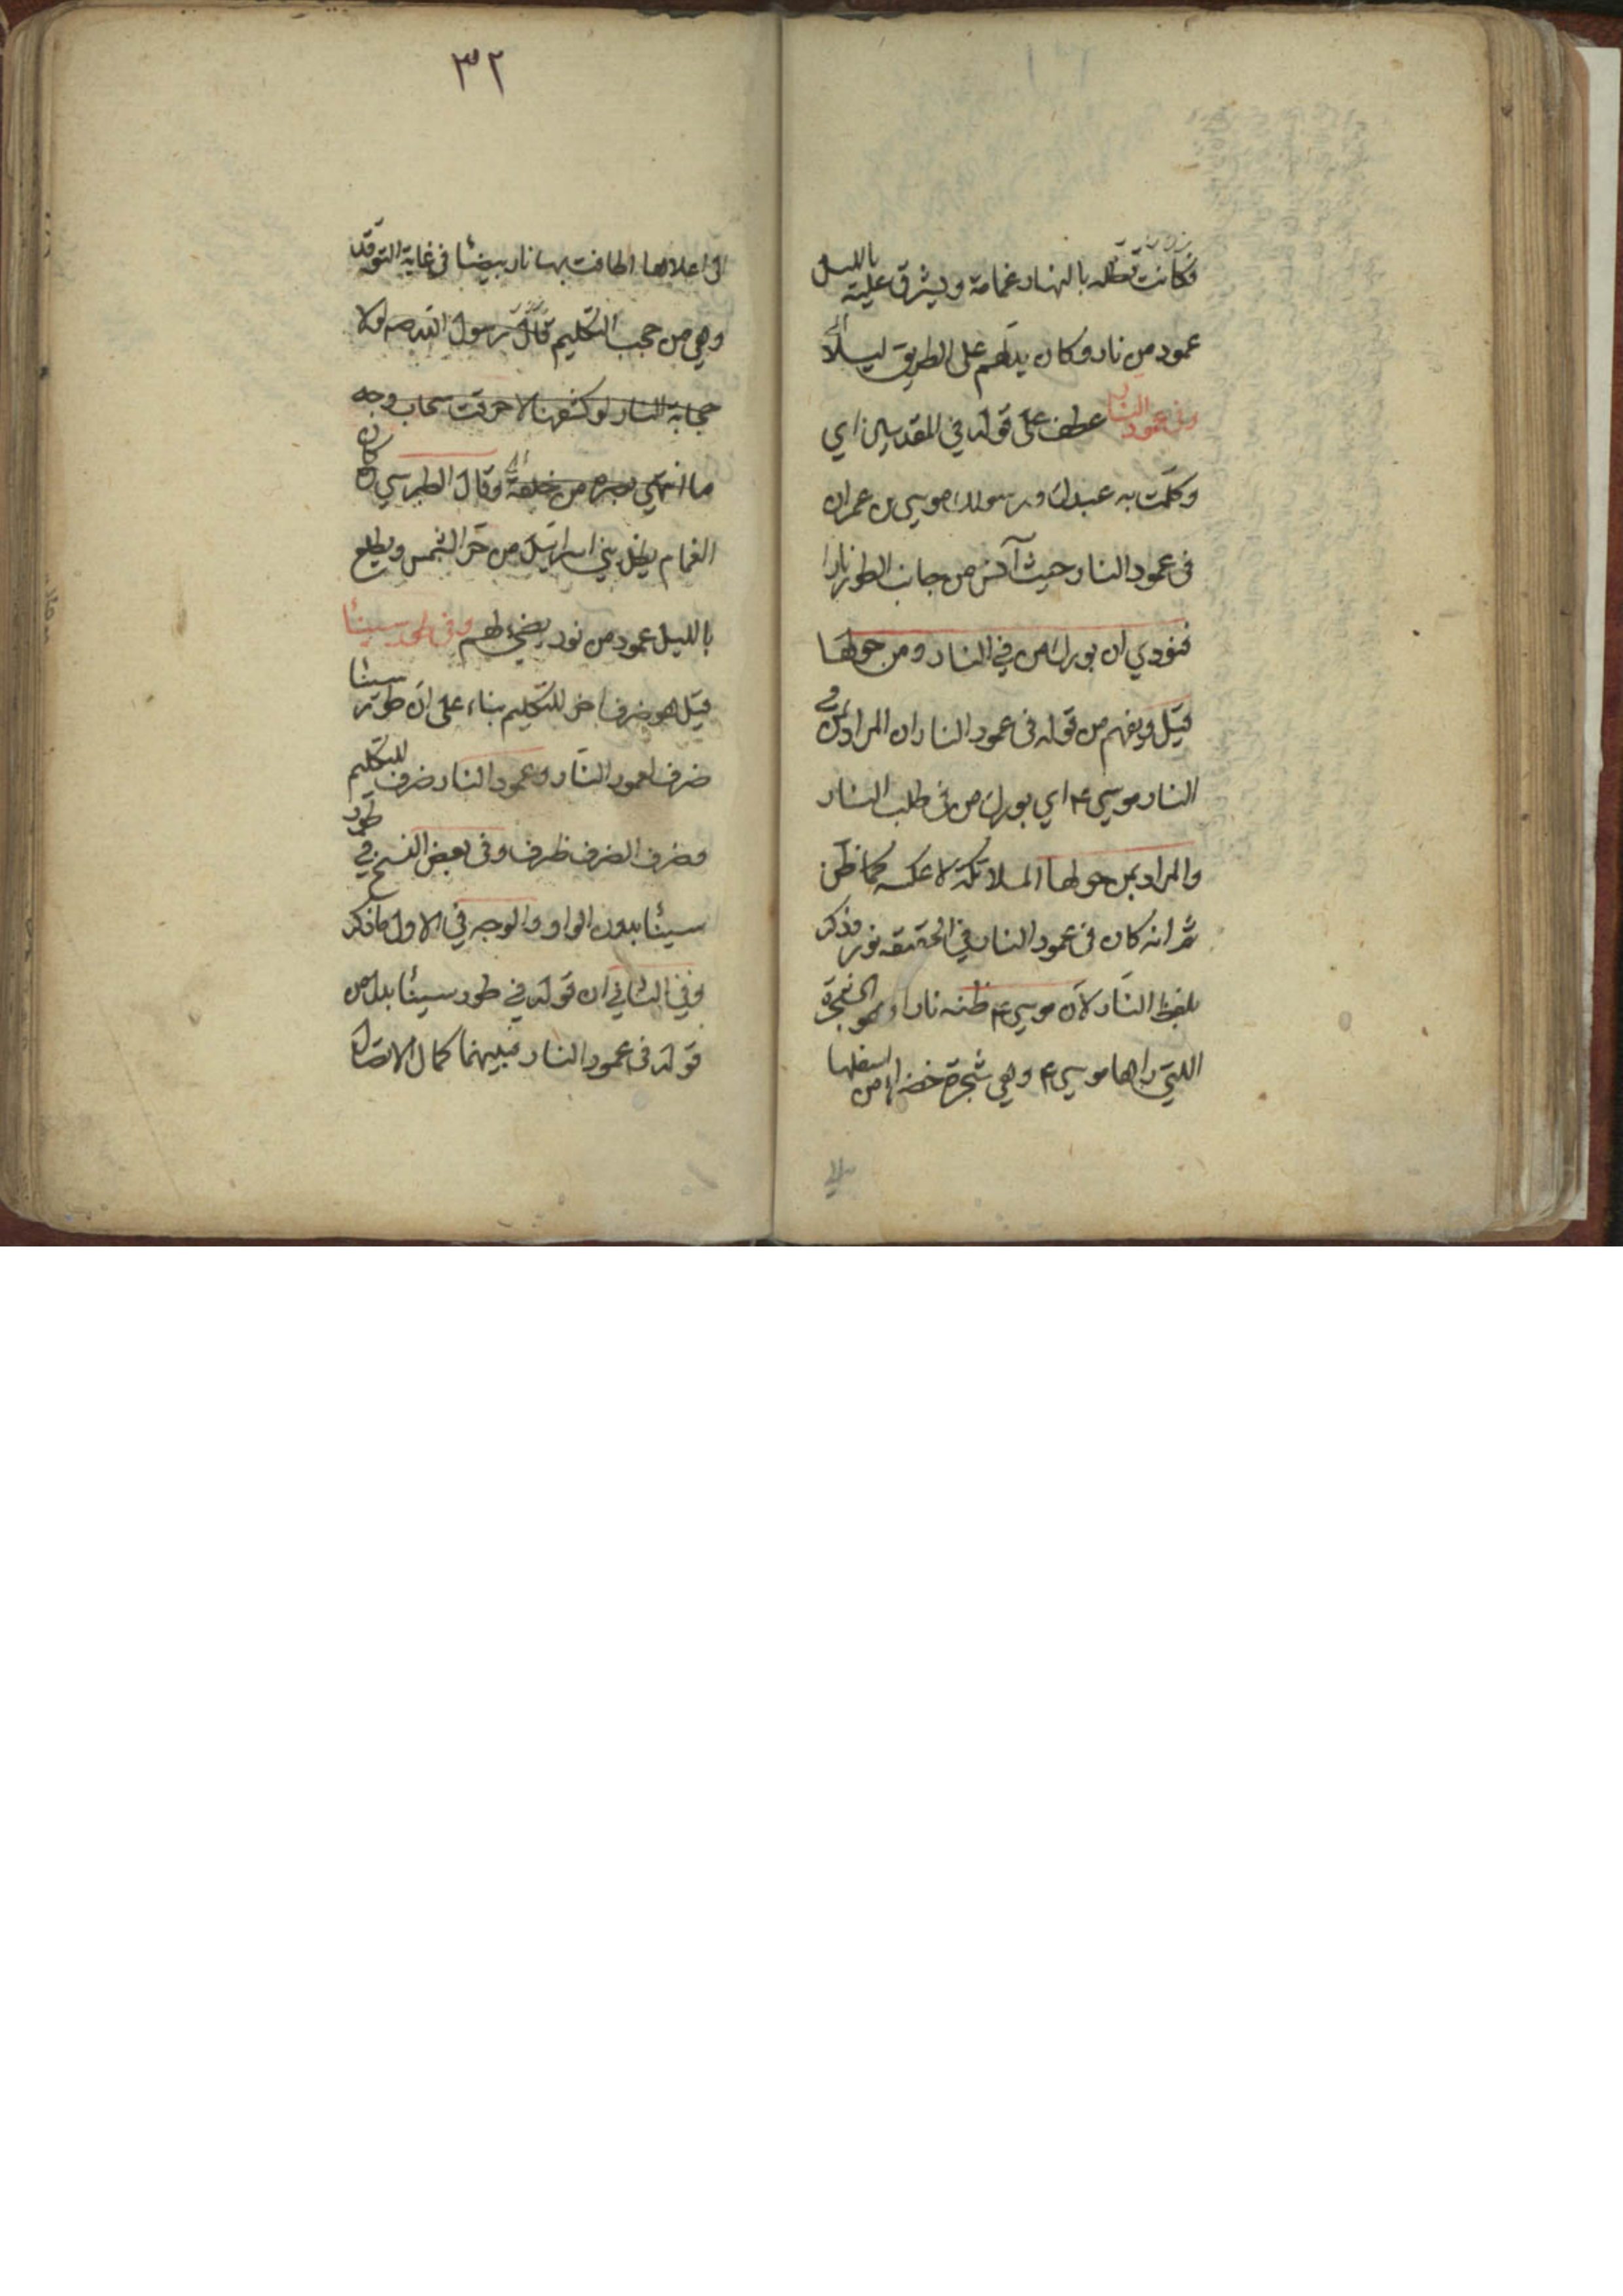 فكانت تظله بالنهار غمامة ويشرق عليه بالليل
عمود من نار وكان يدلهم على الطريق ليلا الخ
وفي عمود النار عطف على قوله في المقدسين اي
وكلمت به عبدك ورسولك موسى بن عمران
فى عمود النار حيث آنس من جانب الطور نارا
فنودي ان بورك من في النار ومن حولها
قيل ويفهم من قوله فى عمود النار ان المراد بمن في
النار موسى ع اي بورك من فى طلب النار
والمراد بمن حولها الملائكة لا عكسه كما ظن
ثم انه كان فى عمود النار في الحقيقه نور وذكر
بلفظ النار لان موسى ع ظنه نارا وهو الشجرة
اللتي راها موسى ع وهى شجرة خضراء من اسفلها
٣٢
الى اعلاها اطافت بها نار بيضا فى غاية التوقد
وهي من حجب التكليم قال رسول الله ص لولا
حجابة النار لو كشفها لاحرقت سحاب وجه
ما انتهي بصره من خلقه الخ وقال الطبرسي كان
الغمام يظل بني اسرائيل من حر الشمس ويطلع
بالليل عمود من نور يضيء لهم وفى طور سيناء
قيل هو ضرف اخر للتكليم بناء على ان طور سينا
ضرف لعمود النار وعمود النار ضرف للتكليم
وضرف الضرف ظرف وفى بعض النسخ في طور
سيناء بدون الواو والوجه في الاول ما ذكر
وفي الثاني ان قوله في طور سيناء بدل من
قوله فى عمود النار فبينهما كمال الاتصال